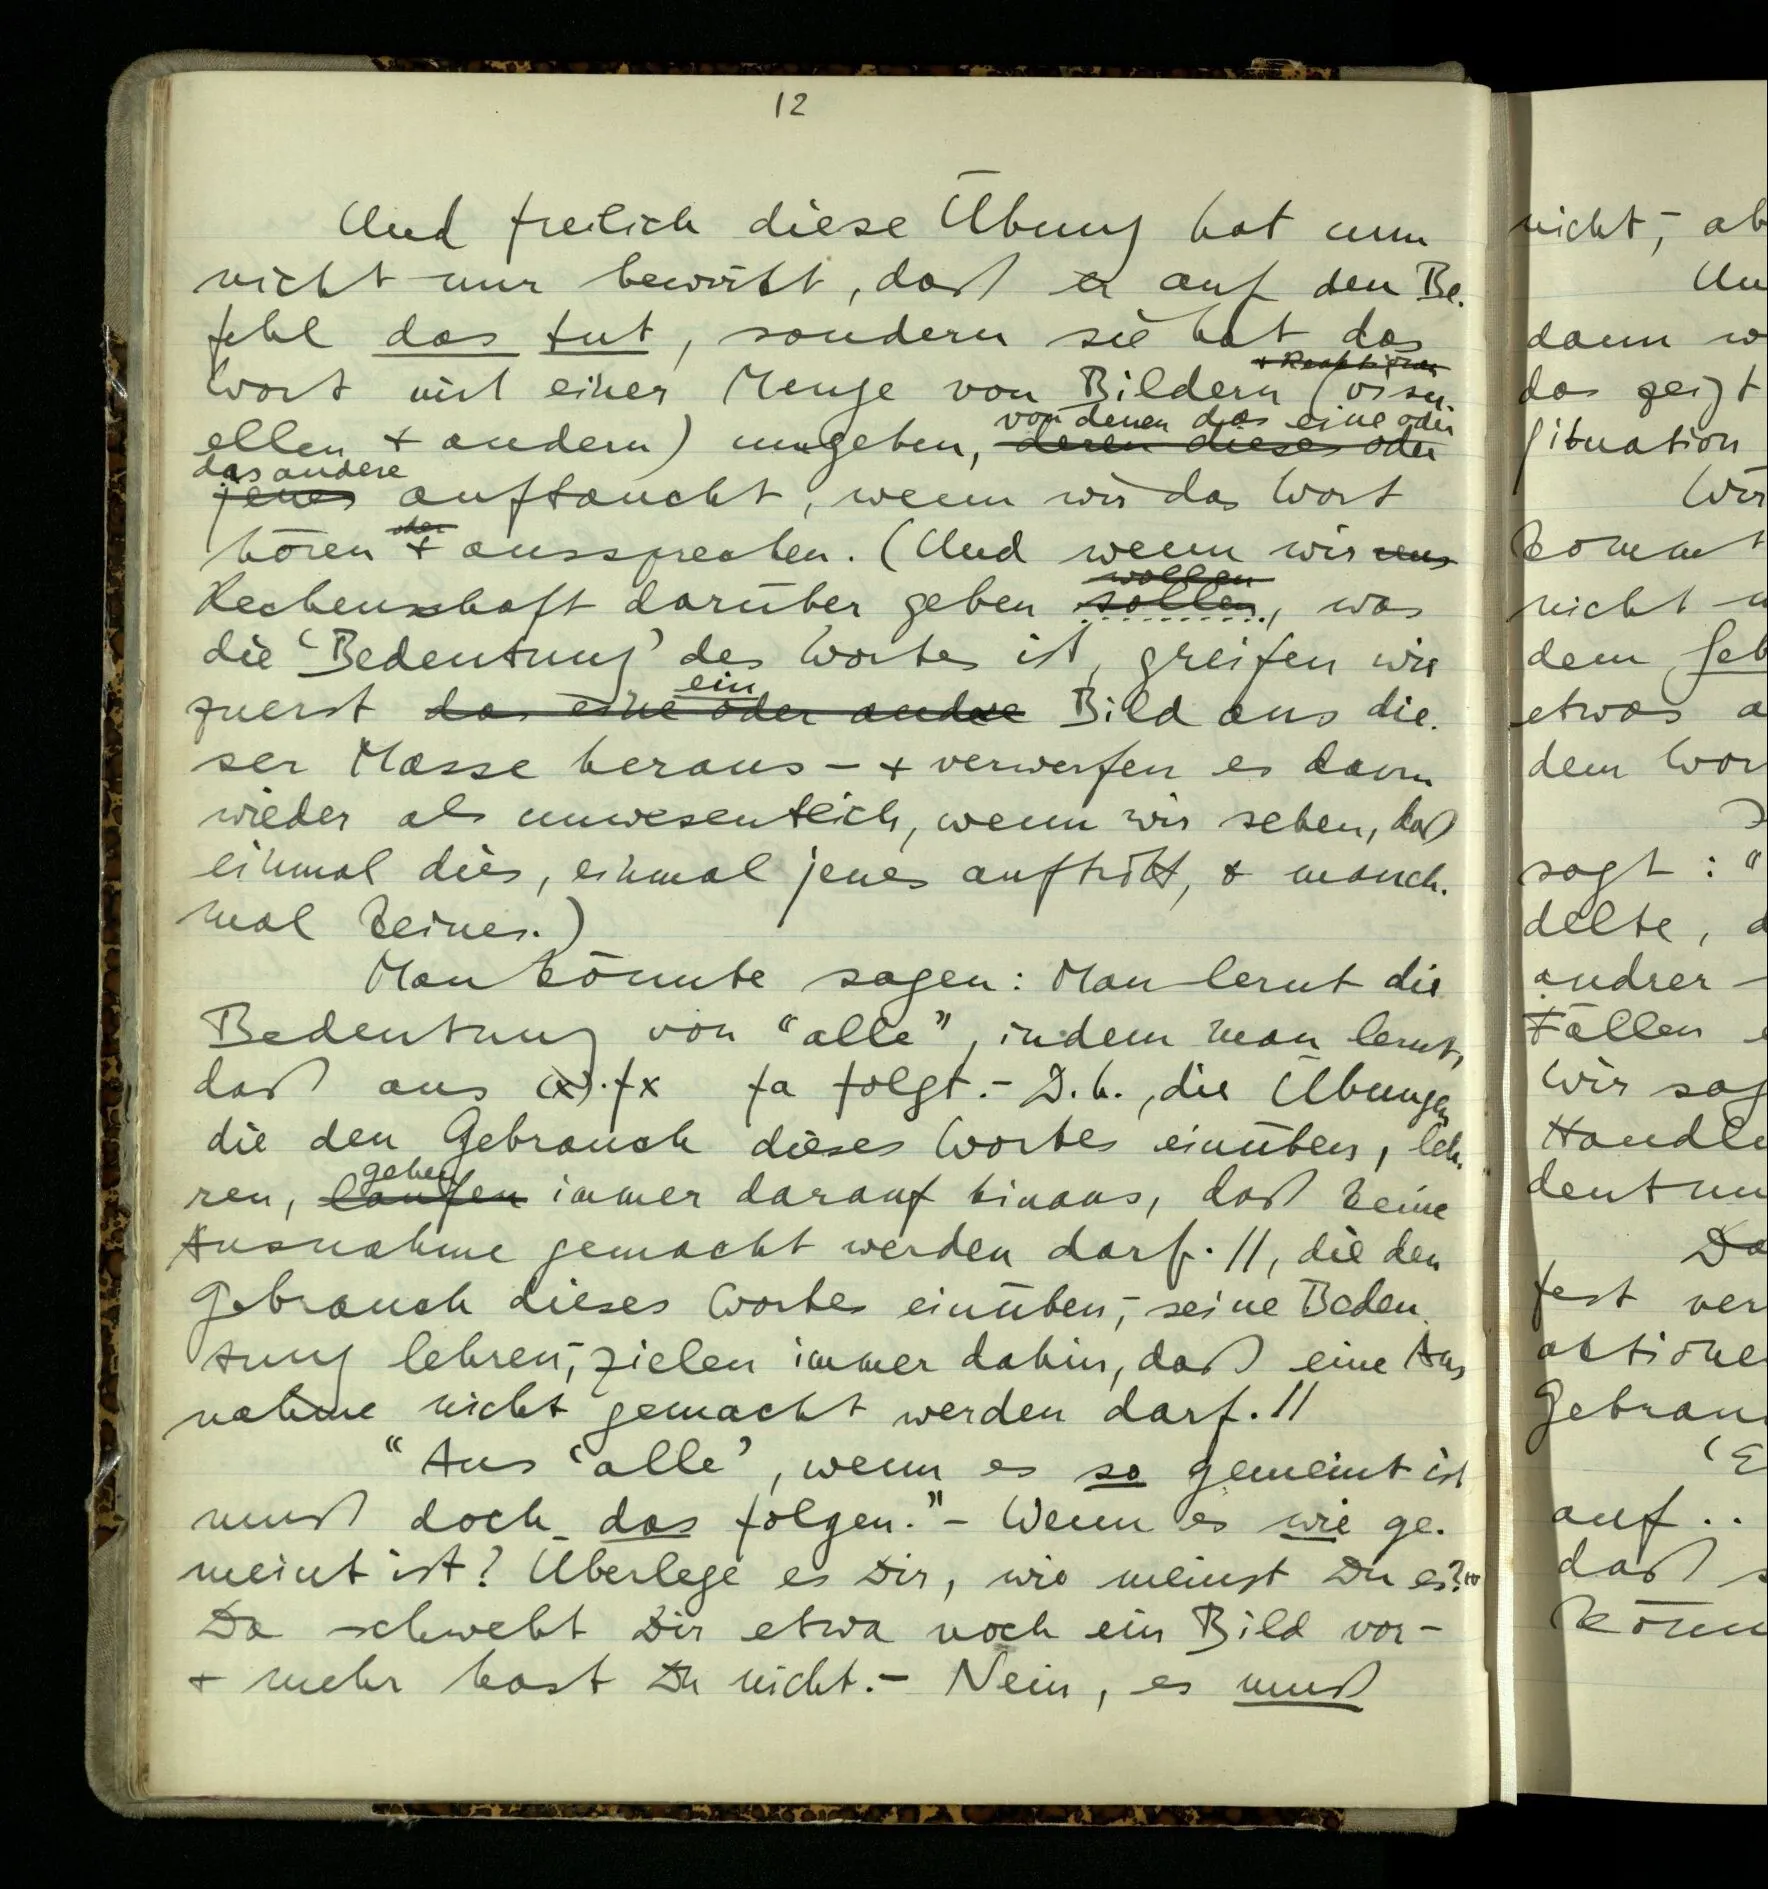 12
Und freilich diese Übung hat nun
nicht nur bewirkt, daß er auf den Be-
fehl das tut, sondern sie hat das
+ Reaktionen
Wort mit einer Menge von Bildern (visu-
von denen das eine oder
ellen + andern) umgeben, deren dieses oder
das andere
jenes auftaucht, wenn wir das Wort
oder
hören + aussprechen. (Und wenn wir uns
wollen
Rechenschaft darüber geben sollen, was
die ‘Bedeutung’ des Wortes ist, greifen wir
ein
zuerst das eine oder andre Bild aus die-
ser Masse heraus – + verwerfen es dann
wieder als unwesentlich, wenn wir sehen, daß
einmal dies, einmal jenes auftritt, + manch-
mal keines.)
Man könnte sagen: Man lernt die
Bedeutung von “alle”, indem man lernt,
daß aus (x).fx fa folgt. – D.h., die Übungen
die den Gebrauch dieses Wortes einüben, leh-
gehen
ren, laufen immer darauf hinaus, daß keine
Ausnahme gemacht werden darf. //, die den
Gebrauch dieses Wortes einüben, – seine Bedeu-
tung lehren, – zielen immer dahin, daß eine Aus
nahme nicht gemacht werden darf. //
“Aus ‘alle’, wenn es so gemeint ist
muß doch das folgen.” – Wenn es wie ge-
meint ist? Überlege es Dir, wie meinst Du es?
Da schwebt Dir etwa noch ein Bild vor –
+ mehr hast Du nicht. – Nein, es muß
nicht, – ab
Un
dann w
das zeigt
Situation
Wir
kommt
nicht
dem Geb
etwas a
dem Wor
sagt: “
delte, d
andrer –
Fällen e
Wir sag
Handlu
deutun
Da
fest ver
aktione
Gebrau
auf ..
daß s
könn